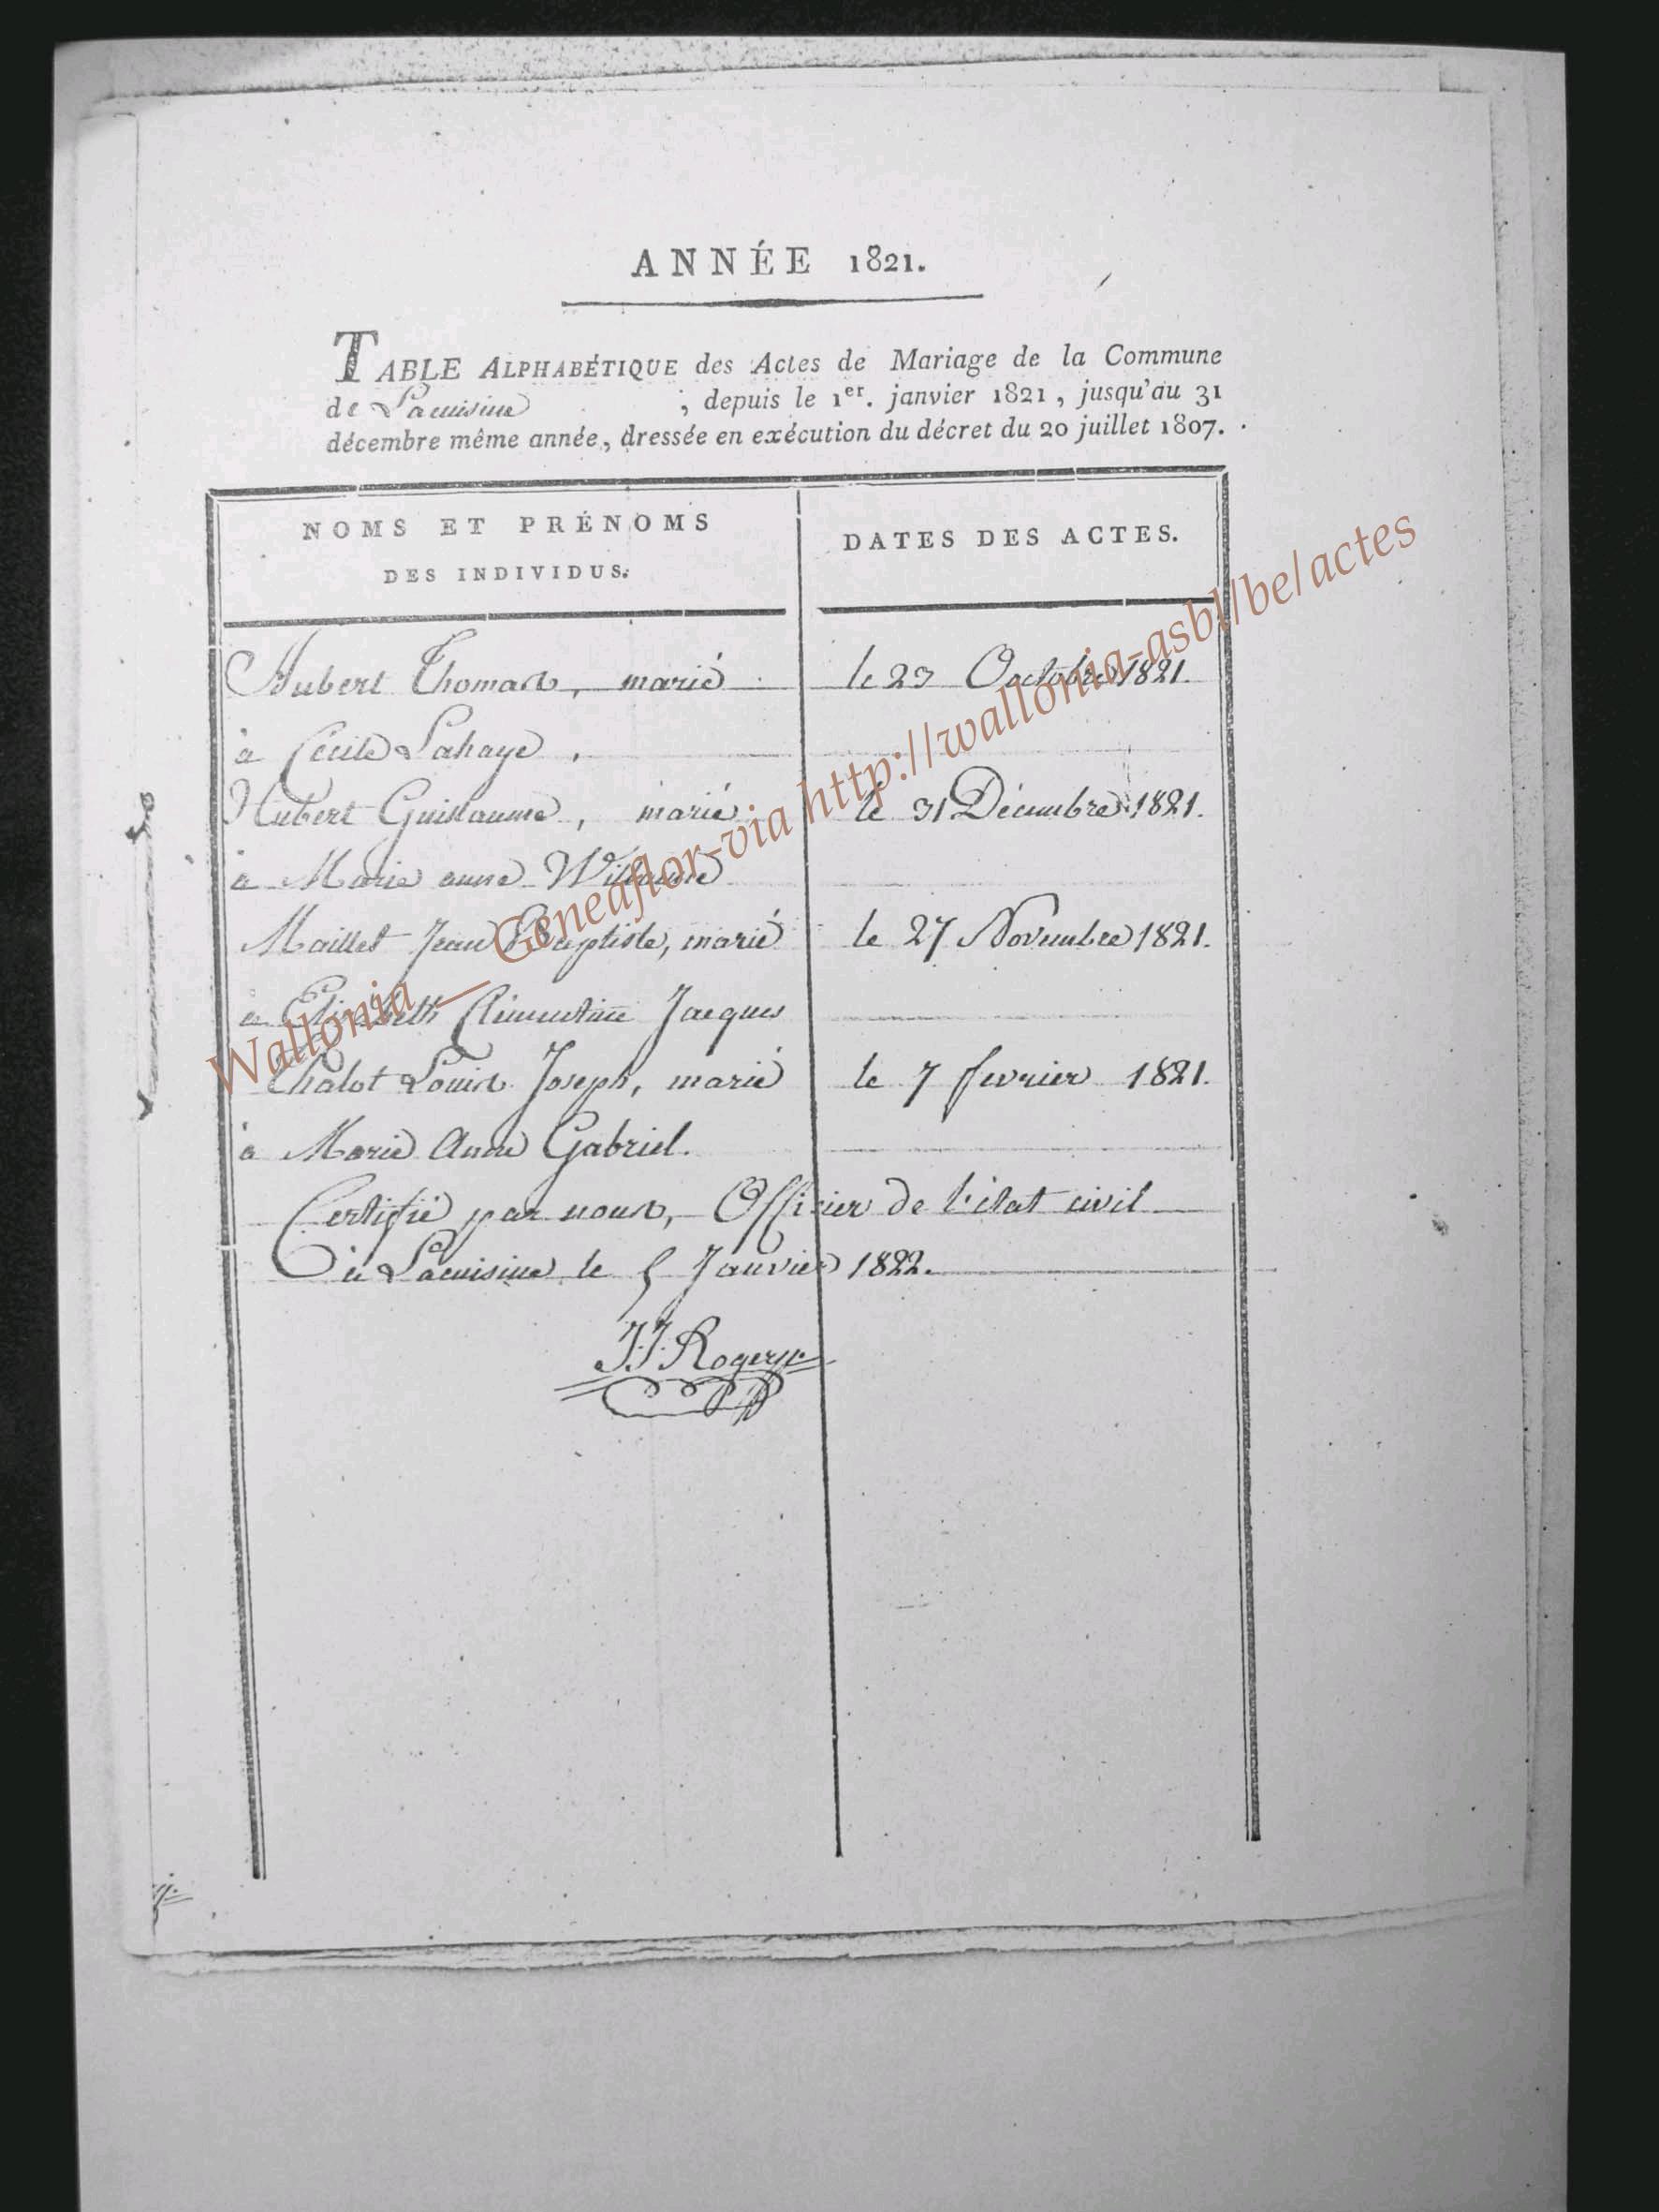 ANNÉE 1821.
TABLE ALPHABÉTIQUE des Actes de Mariage de la Commune
de Lacuisine ; depuis le 1er. janvier 1821, jusqu'au 31
décembre même année, dressée en exécution du décret du 20 juillet 1807.
NOMS ET PRÉNOMS
DES INDIVIDUS.
DATES DES ACTES.
Hubert Thomas, marié le 23 Octobre 1821.
à Cécile Lahaye.
Hubert Guillaume, marié le 31 Décembre 1821.
à Marie anne
Maillet Jean Baptiste, marié le 27 Novembre 1821.
à Elisabeth Clémentine Jacques
Chalot Louis Joseph, marié le 7 fevrier 1821.
à Marie Anne Gabriel.
Certifié par nous, Officier de l'état civil
à Lacuisine le 5 Janvier 1822.
J.J. Rogery
Wallonia _ Geneaflor-via http://wallonia-asbl/be/actes